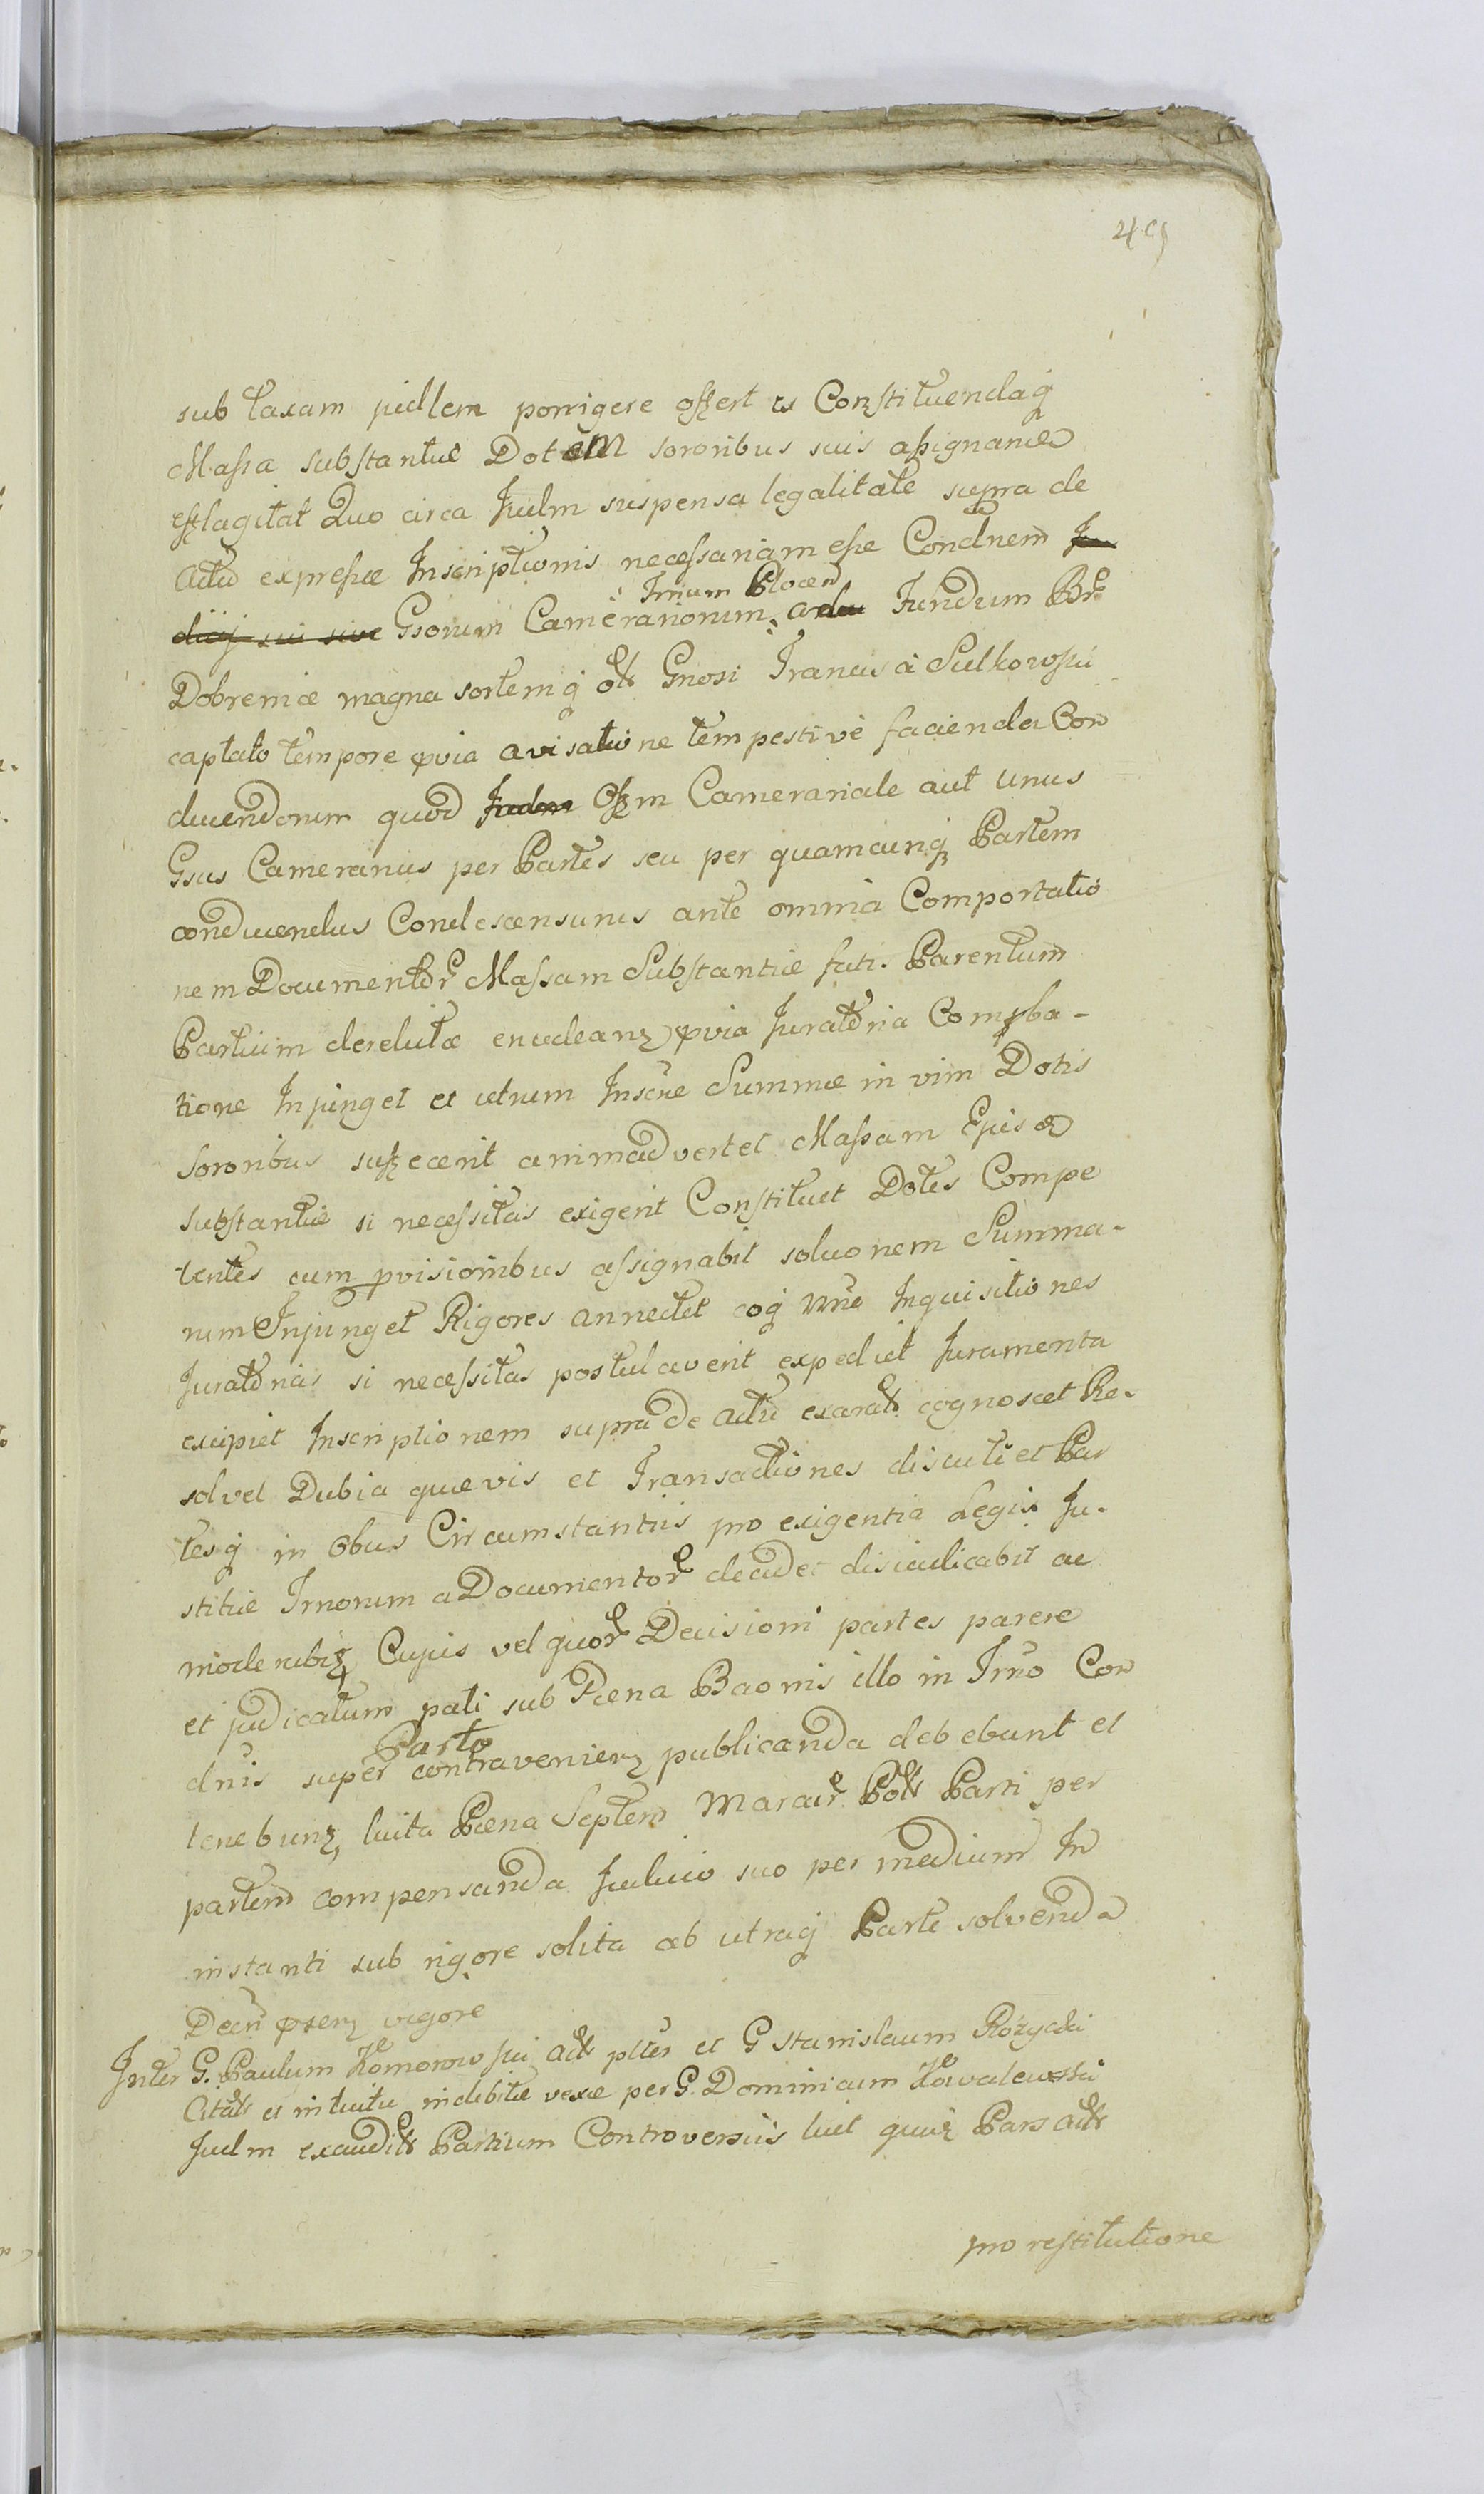 49
sub taxam judlem porrigere offert et Constituendaq
Massa substantiæ Dotem sororibus suis assignari
efflagitat Quo circa Judm suspensa legalitate supra de
Actu expressæ Inscriptionis necessariam esse Condnem Ju
dicij sui sive Gsorum Camerariorum Trium Plocen ad Fundum Br
Dobremice magna sortemq Gnosi Francisci Sulkowski
captato tempore pvia avisatione tempestive facienda Con
ducendorum quod Judm Offm Camerariale aut unus
Gsus Camerarius per Partes seu per quamcunq Partem
conducendus Condescensurus ante omnia Comportatio
nem Documentor Massam Substantiæ fati. Parentum
Partium derelictæ enucleanz pvia Juratoria Comproba-
tione Injunget et utrum Inscræ Summæ in vim Dotis
Sororibus suffecerit animadvertet Massam Ejusd
substantiæ si necessitas exigerit Constituet Dotes Compe
tentes cum pvisionibus assignabit soluonem Summa-
rum Injunget Rigores annectet coq Inquisitiones
Juratorias si necessitas postulaverit expediet Juramenta
excipiet Inscriptionem supra de Actu exarat cognoscet Re-
solvet Dubia quævis et Transactiones discutiet Par
tesq in Obus Circumstantiis pro exigentia Legis Ju-
stitiæ Trnorum a Documentor decidet disiudicabit ac
moderabiz Cujus vel quor Decisioni partes parere
et judicatum pati sub Pæna Baonis illo in Trno Con
dnis super Parte contravenienz publicanda debebunt et
tenebunz luita Pæna Septem Marcar Parti per
partem compensanda Judicio suo per medium In
instanti sub rigore solita ab utraq Parte solvenda
Decri psenz vigore
Inter G. Paulum Komorowski Act et G Stanislaum Różycki
Citat et intuitu indebitæ vexæ per G. Dominicum Kowalewski
Judm exaudit Partium Controversiis Pars Act
pro restitutione